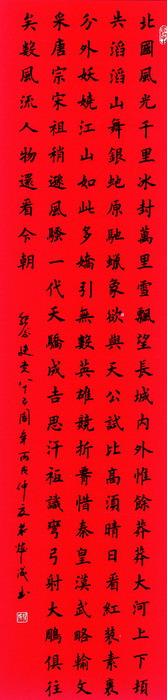 北國風光千里冰封萬里雪飄望長城內外惟餘莽莽大河上下頓
失滔滔山舞銀蛇原馳蠟象欲與天公試比高須晴日看紅裝素裹
分外妖嬈江山如此多嬌引無數英雄競折腰惜秦皇漢武略輸文
采唐宗宋祖稍遜風騷一代天驕成吉思汗祗識彎弓射大鵰俱往
矣數風流人物還看今朝
紀念建党八十五周年丙戌仲夏成书